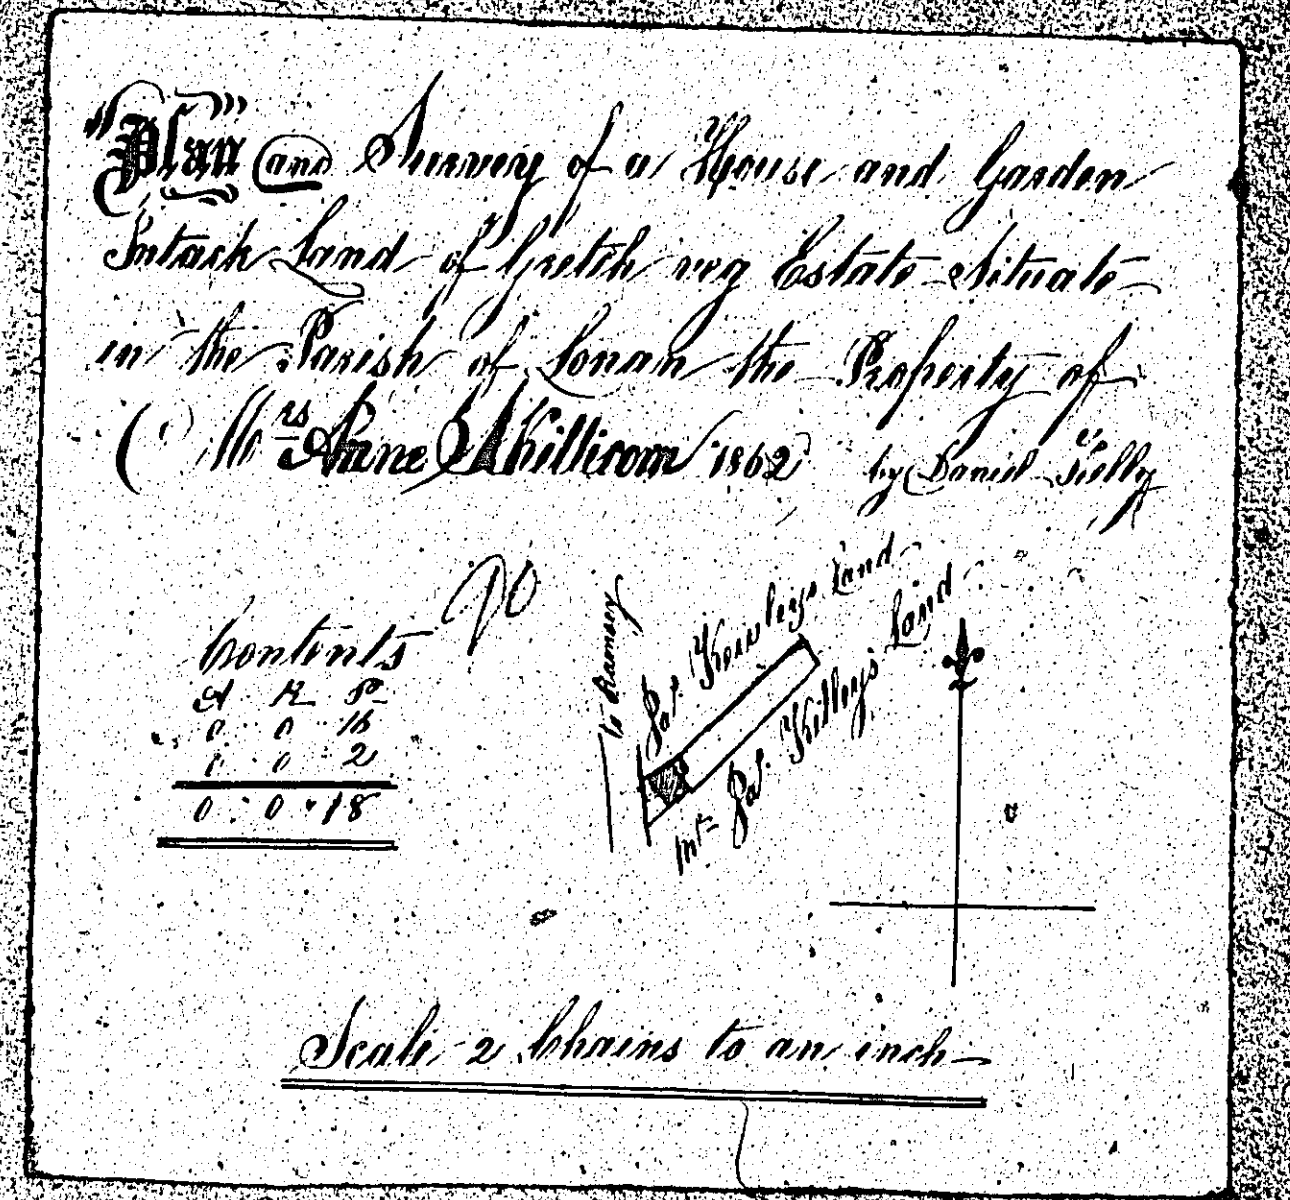 Plan and Survey of a House and Garden
Intack Land of Gretch veg Estate Situate
in the Parish of Lonan the Property of
Mrs Anne Skillicorn 1862 by Daniel Kelly
Contents
A R P
0 0 16
0 0 2
0 . 0 . 18
to Ramsey
Jas. Kewleys Land
Mr Jas. Killeys Land
Scale 2 Chains to an inch